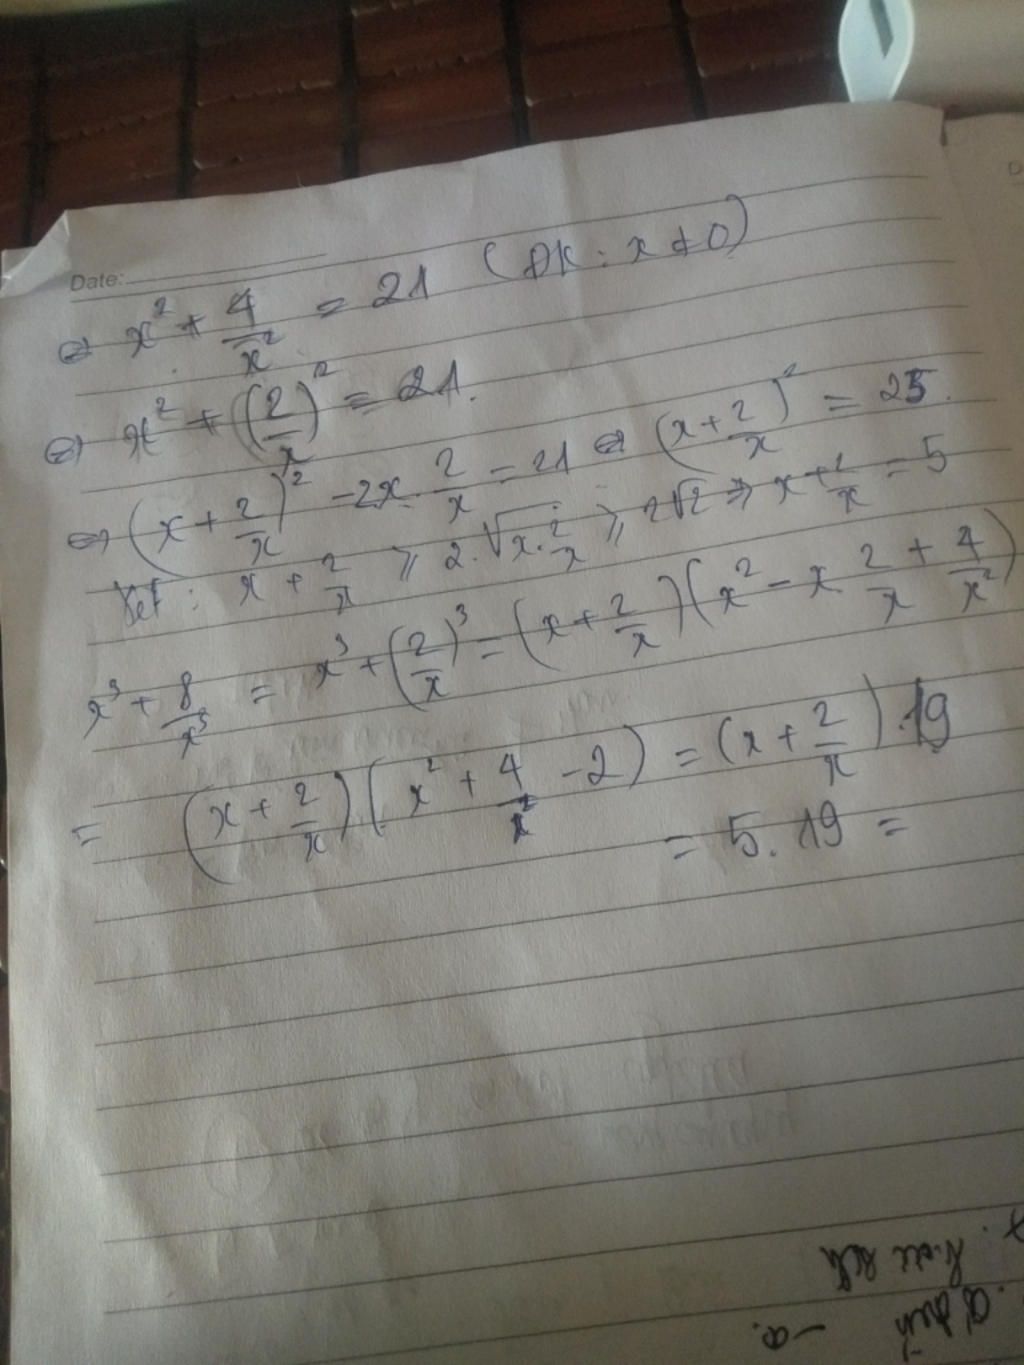 Date:
⇔ x² + 4/x² = 21 (ĐK: x ≠ 0)
⇔ x² + (2/x)² = 21.
⇔ (x + 2/x)² - 2x. 2/x = 21 ⇔ (x + 2/x)² = 25.
Xét: x + 2/x ⩾ 2.√(x. 2/x) ⩾ 2√2 ⇒ x + 2/x = 5
x³ + 8/x³ = x³ + (2/x)³ = (x + 2/x)(x² - x 2/x + 4/x²)
= (x + 2/x)(x² + 4/x² - 2) = (x + 2/x).19
= 5.19 =